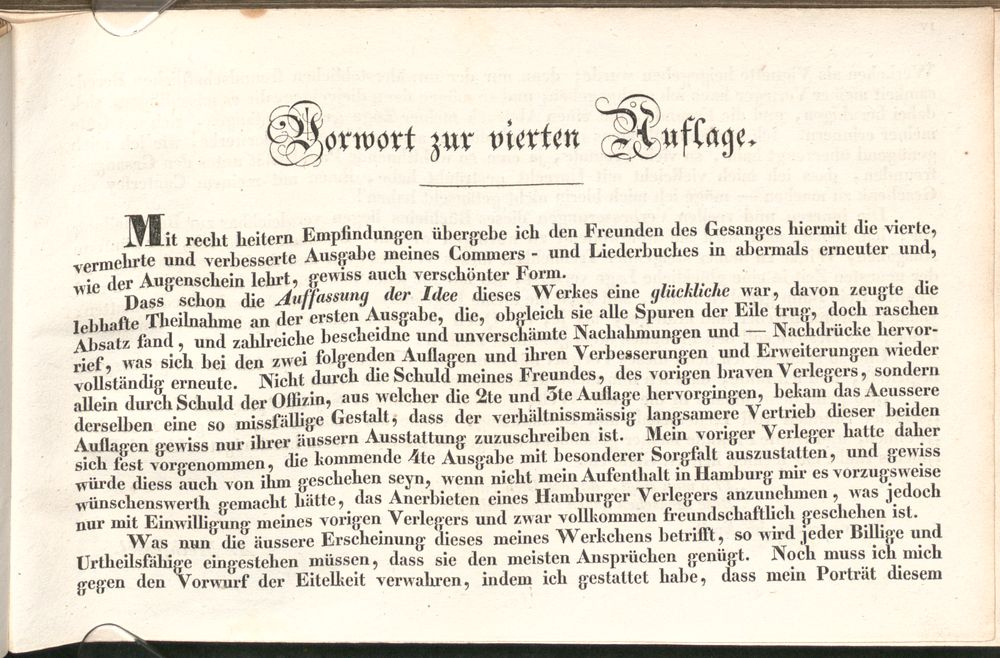 Vorwort zur vierten Auflage.
Mit recht heitern Empfindungen übergebe ich den Freunden des Gesanges hiermit die vierte,
vermehrte und verbesserte Ausgabe meines Commers - und Liederbuches in abermals erneuter und,
wie der Augenschein lehrt, gewiss auch verschönter Form.
Dass schon die Auffassung der Idee dieses Werkes eine glückliche war, davon zeugte die
lebhafte Theilnahme an der ersten Ausgabe, die, obgleich sie alle Spuren der Eile trug, doch raschen
Absatz fand, und zahlreiche bescheidne und unverschämte Nachahmungen und — Nachdrücke hervor-
rief, was sich bei den zwei folgenden Auflagen und ihren Verbesserungen und Erweiterungen wieder
vollständig erneute. Nicht durch die Schuld meines Freundes, des vorigen braven Verlegers, sondern
allein durch Schuld der Offizin, aus welcher die 2te und 3te Auflage hervorgingen, bekam das Aeussere
derselben eine so missfällige Gestalt, dass der verhältnissmässig langsamere Vertrieb dieser beiden
Auflagen gewiss nur ihrer äussern Ausstattung zuzuschreiben ist. Mein voriger Verleger hatte daher
sich fest vorgenommen, die kommende 4te Ausgabe mit besonderer Sorgfalt auszustatten, und gewiss
würde diess auch von ihm geschehen seyn, wenn nicht mein Aufenthalt in Hamburg mir es vorzugsweise
wünschenswerth gemacht hätte, das Anerbieten eines Hamburger Verlegers anzunehmen, was jedoch
nur mit Einwilligung meines vorigen Verlegers und zwar vollkommen freundschaftlich geschehen ist.
Was nun die äussere Erscheinung dieses meines Werkchens betrifft, so wird jeder Billige und
Urtheilsfähige eingestehen müssen, dass sie den meisten Ansprüchen genügt. Noch muss ich mich
gegen den Vorwurf der Eitelkeit verwahren, indem ich gestattet habe, dass mein Porträt diesem